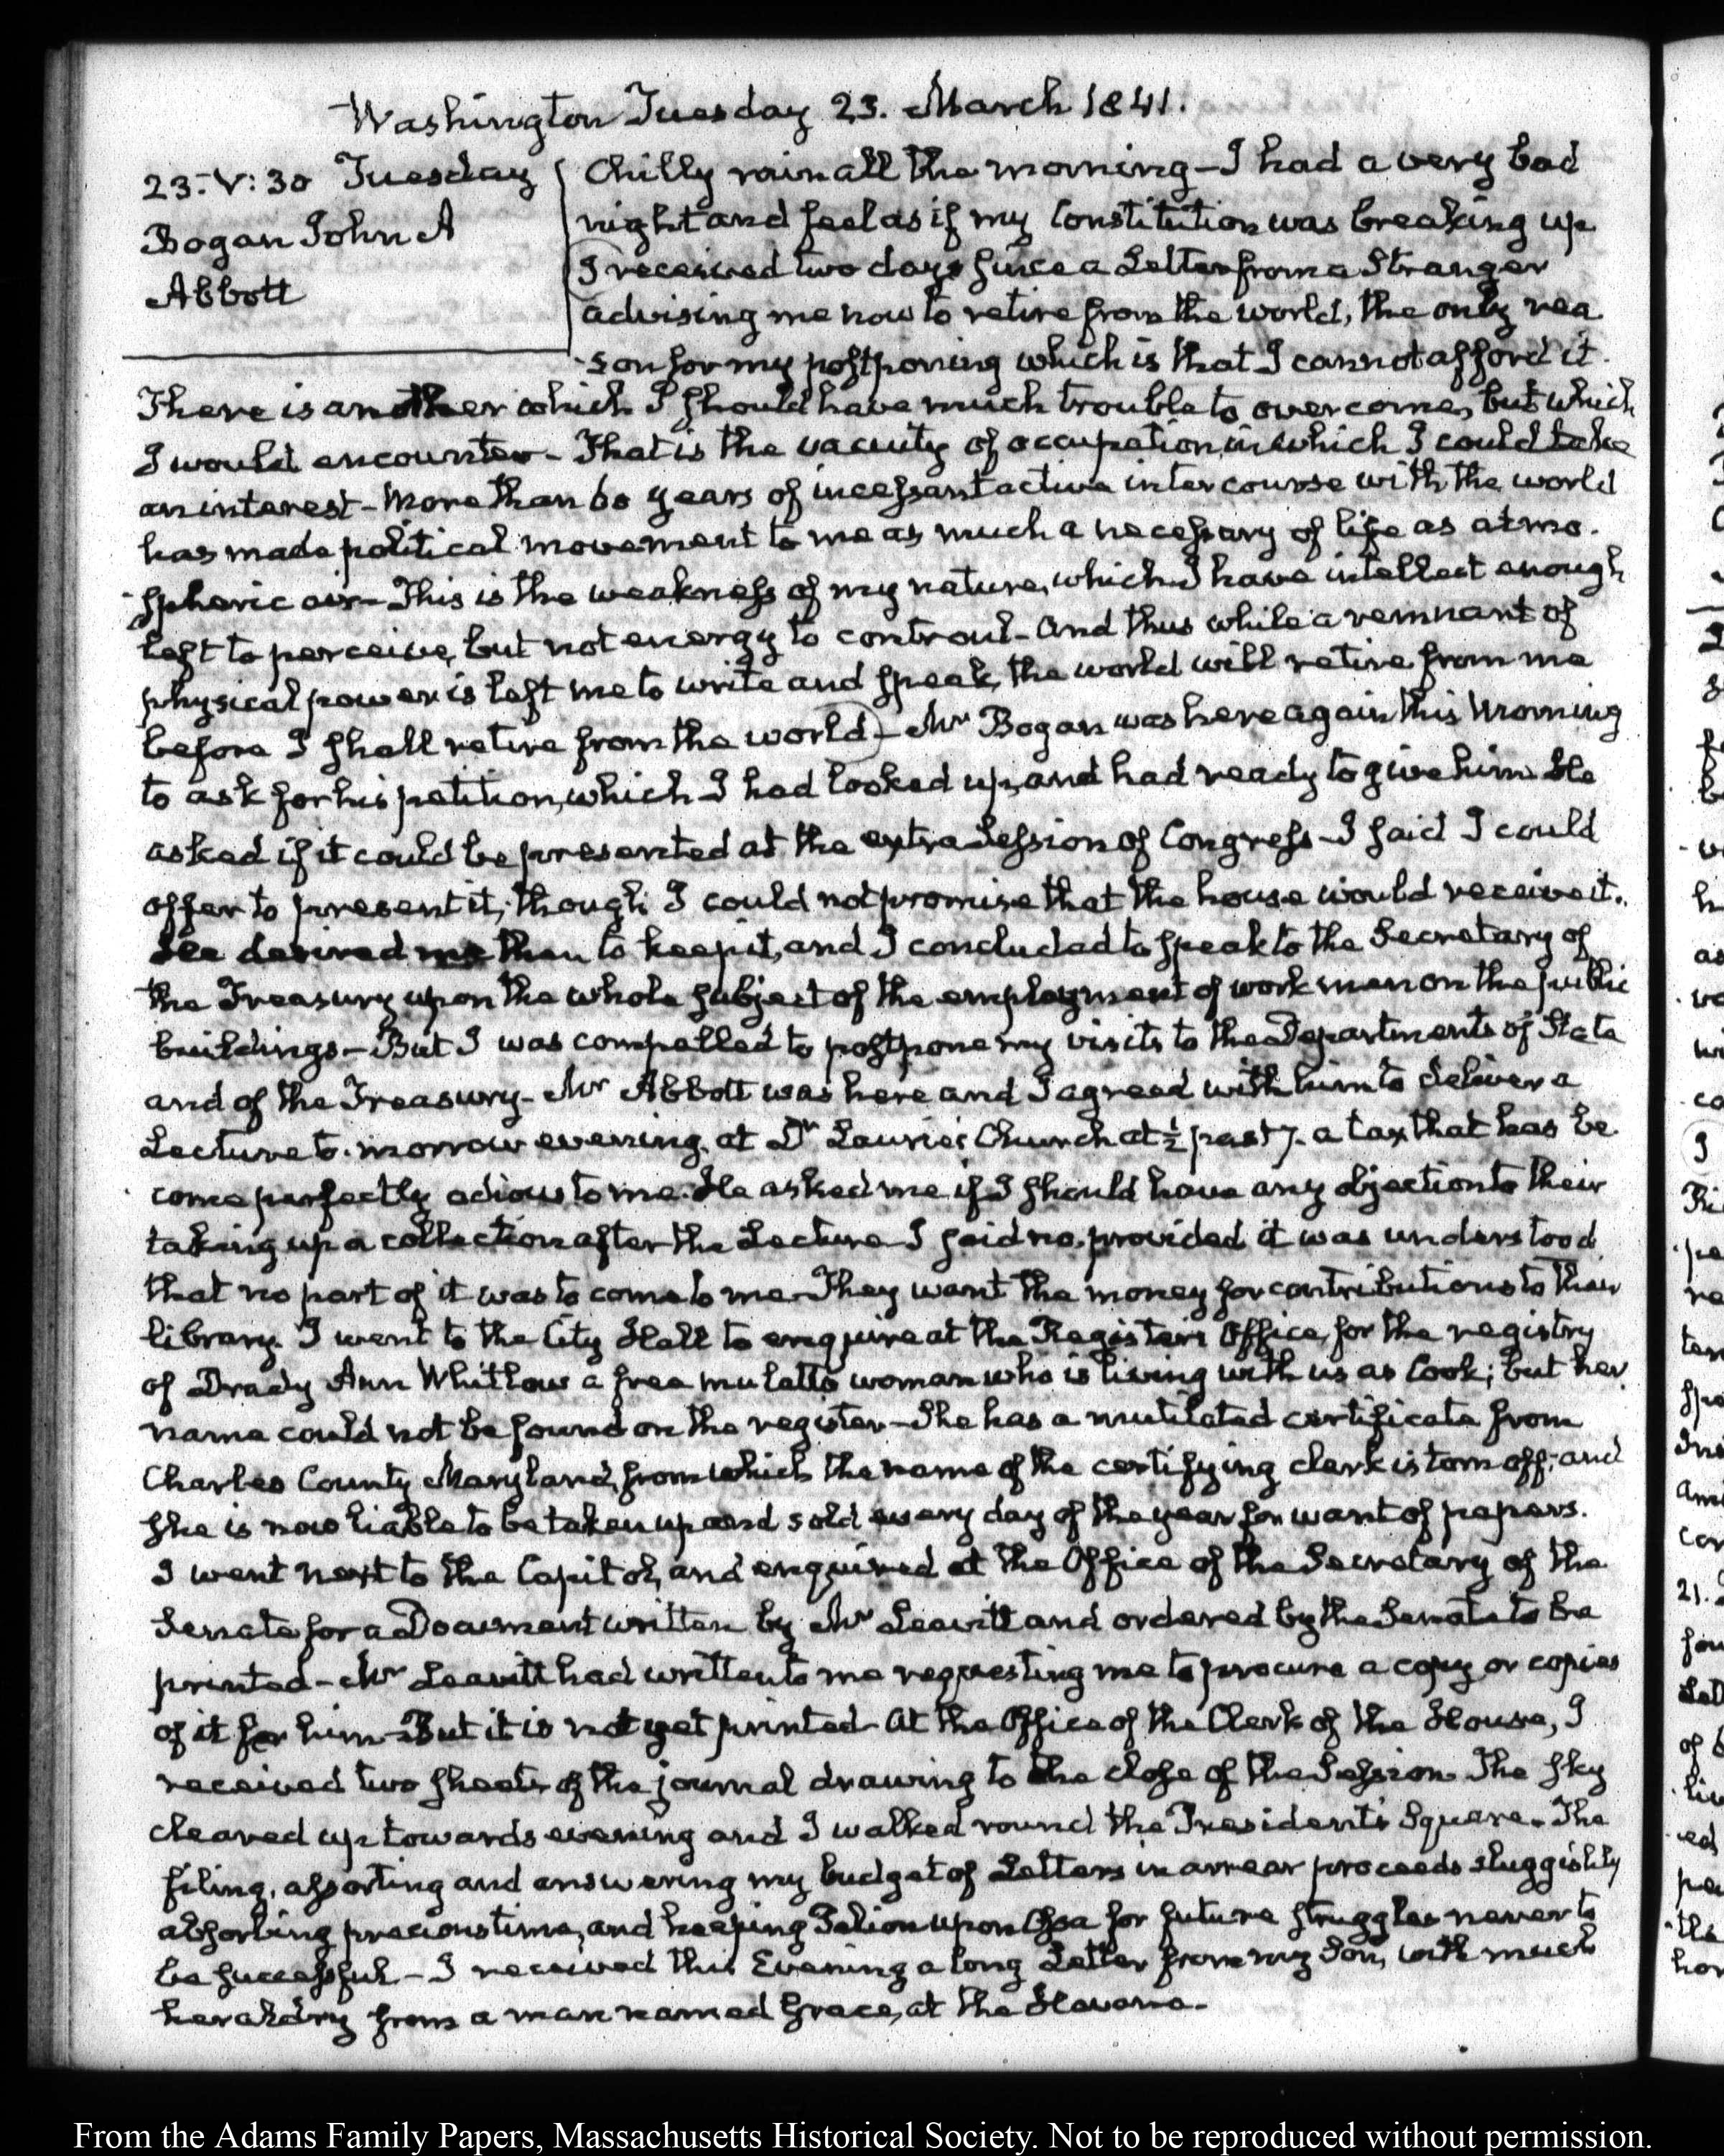 Washington Tuesday 23. March 1841.
23. V: 30 Tuesday
Bogan John A
Abbott
Chilly rain all the morning – I had a very bad
night and feel as if my Constitution was breaking up
I received two days since a Letter from a Stranger
advising me now to retire from the world, the only rea
-son for my postponing which is that I cannot afford it.
There is another which I should have much trouble to overcome, but which
I would encounter – That is the vacuity of occupation, in which I could take
an interest – More than 60 years of incessant active intercourse with the world
has made political movement to me as much a necessary of life as atmo-
-spheric air – This is the weakness of my nature, which I have intellect enough
left to perceive, but not energy to controul – And thus while a remnant of
physical power is left me to write and speak, the world will retire from me
before I shall retire from the world – Mr Bogan was here again this Morning
to ask for his petition, which I had looked up, and had ready to give him. He
asked if it could be presented at the extra Session of Congress – I said I could
offer to present it; though I could not promise that the house would receive it.
He desired me then to keep it, and I concluded to speak to the Secretary of
the Treasury upon the whole subject of the employment of workmen on the public
buildings – But I was compelled to postpone my visits to the Departments of State
and of the Treasury – Mr Abbott was here and I agreed with him to deliver a
Lecture to-morrow evening, at Dr Laurie's Church at ½ past 7. a tax that has be
come perfectly odious to me. He asked me if I should have any objection to their
taking up a collection after the Lecture – I said no, provided it was understood
that no part of it was to come to me – They want the money for contributions to their
library. I went to the City Hall to enquire at the Register's Office, for the registry
of Drady Ann Whitlow a free mulatto woman who is living with us as Cook; but her
name could not be found on the register – She has a mutilated certificate from
Charles County Maryland, from which the name of the certifying clerk is torn off; and
she is now liable to be taken up and sold every day of the year for want of papers.
I went next to the Capitol, and enquired at the Office of the Secretary of the
Senate for a Document written by Mr Leavitt and ordered by the Senate to be
printed – Mr Leavitt had written to me requesting me to procure a copy or copies
of it for him – But it is not yet printed – At the Office of the Clerk of the House, I
received two sheets of the journal drawing to the close of the Session. The sky
cleared up towards evening and I walked round the President's Square. The
filing, assorting and answering my budget of Letters in arrear proceeds sluggishly
absorbing precious time, and heaping Pelion upon Ossa for future struggles never to
be successful – I received this Evening a long Letter from my Son, with much
heraldry from a man named Grace, at the Havana.
From the Adams Family Papers, Massachusetts Historical Society. Not to be reproduced without permission.